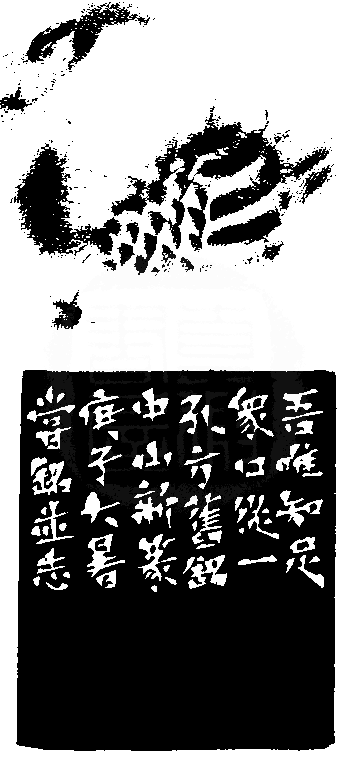 吾唯知足
衆口從一
孔方舊銘
中山新篆
庚子大暑
嘗銘並志